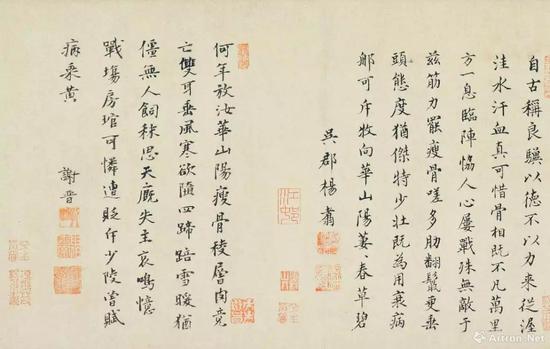 自古稱良驥以德不以力來從渥
洼水汗血真可惜骨相既不凡萬里
方一息臨陣恊人心屢戰殊無敵于
兹筋力罷瘦骨嗟多肋翻鬣更垂
頭態度猶傑特少壯既為用衰病
那可斥牧向華山陽萋〻春草碧
吳郡楊翥
何年放汝華山陽瘦骨稜層肉竟
亡雙耳垂風寒欲隕四蹄踣雪暖猶
僵無人飼秣思天廄失主哀鳴憶
戰場房琯可憐遭貶斥少陵曾賦
病乘黃 謝晋
Artron.Net